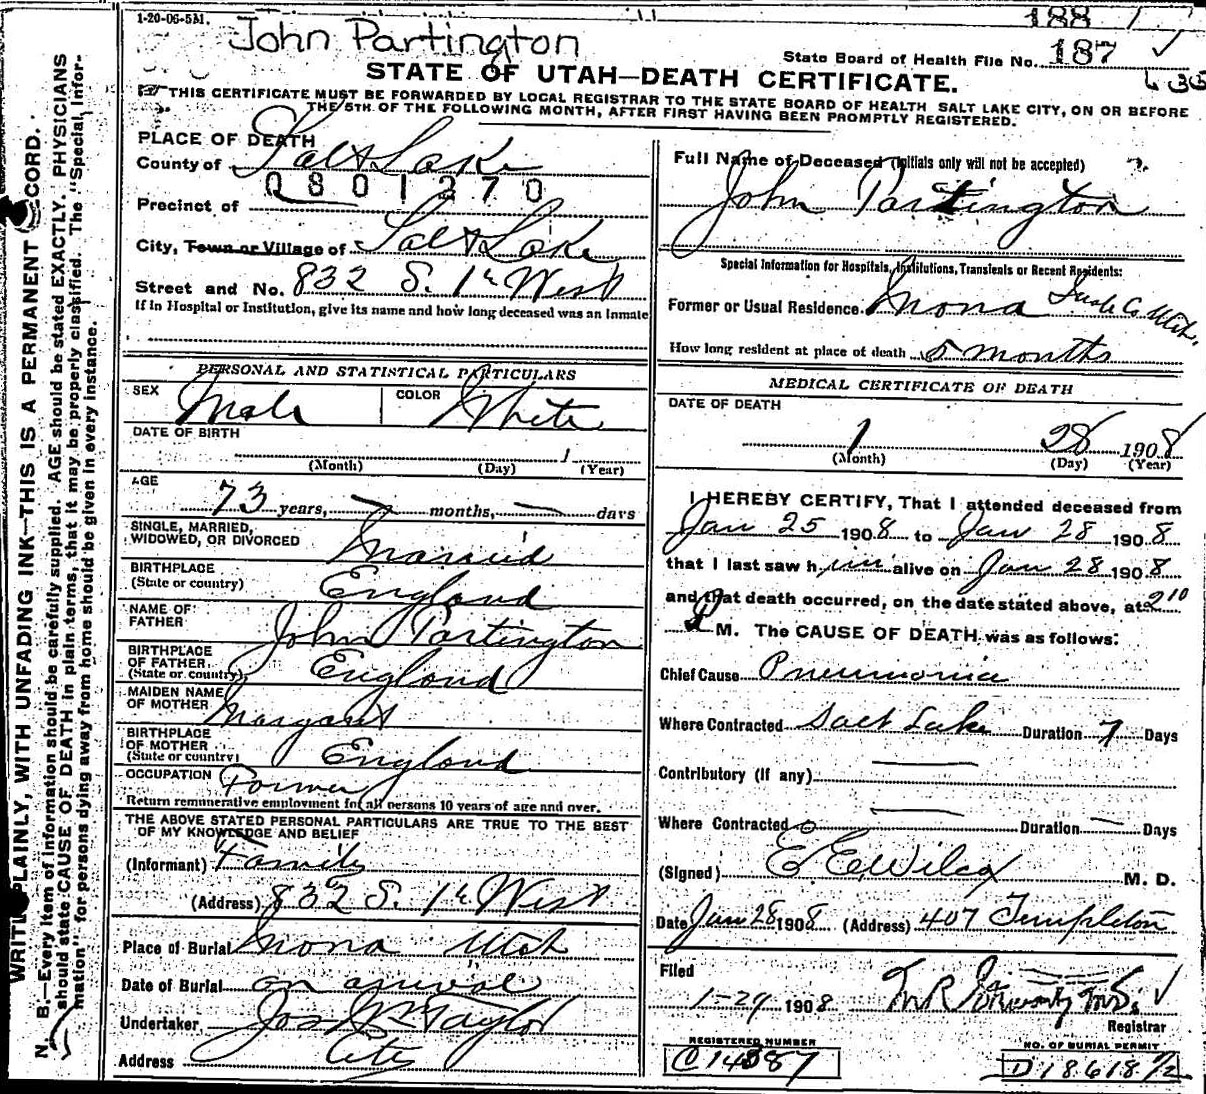 1-20-06-5M.
188
John Partington
State Board of Health File No. 187
STATE OF UTAH—DEATH CERTIFICATE.
THIS CERTIFICATE MUST BE FORWARDED BY LOCAL REGISTRAR TO THE STATE BOARD OF HEALTH SALT LAKE CITY, ON OR BEFORE
THE 5TH OF THE FOLLOWING MONTH, AFTER FIRST HAVING BEEN PROMPTLY REGISTERED.
PLACE OF DEATH
County of Salt Lake
0801270
Precinct of
City, Town or Village of Salt Lake
Street and No. 832 S. 1st West
If in Hospital or Institution, give its name and how long deceased was an Inmate
PERSONAL AND STATISTICAL PARTICULARS
SEX Male COLOR White
DATE OF BIRTH
(Month) (Day) 1 (Year)
AGE
73 years, — months, — days
SINGLE, MARRIED,
WIDOWED, OR DIVORCED Married
BIRTHPLACE
(State or country) England
NAME OF
FATHER John Partington
BIRTHPLACE
OF FATHER
(State or country) England
MAIDEN NAME
OF MOTHER Margaret
BIRTHPLACE
OF MOTHER
(State or country) England
OCCUPATION Farmer
Return remunerative employment for all persons 10 years of age and over.
THE ABOVE STATED PERSONAL PARTICULARS ARE TRUE TO THE BEST
OF MY KNOWLEDGE AND BELIEF
(Informant) Family
(Address) 832 S. 1st West
Place of Burial Mona Utah
Date of Burial on arival
Undertaker Jos Wm Taylor
Address City
Full Name of Deceased (Initials only will not be accepted)
John Partington
Special Information for Hospitals, Institutions, Transients or Recent Residents:
Former or Usual Residence Mona Juab Co Utah
How long resident at place of death 5 months
MEDICAL CERTIFICATE OF DEATH
DATE OF DEATH
1 28 1908
(Month) (Day) (Year)
I HEREBY CERTIFY, That I attended deceased from
Jan 25 1908 to Jan 28 1908
that I last saw him alive on Jan 28 1908
and that death occurred, on the date stated above, at 2 10
M. The CAUSE OF DEATH was as follows:
Chief Cause Pneumonia
Where Contracted Salt Lake Duration 7 Days
Contributory (If any) —
Where Contracted — Duration — Days
(Signed) E E Wilcox M. D.
Date Jan 28 1908 (Address) 407 Templeton
Filed
1-29 1908
Registrar
REGISTERED NUMBER
NO. OF BURIAL PERMIT
D 18618 1/2
WRITE PLAINLY, WITH UNFADING INK—THIS IS A PERMANENT RECORD.
N. B.—Every item of information should be carefully supplied. AGE should be stated EXACTLY. PHYSICIANS
should state CAUSE OF DEATH in plain terms, that it may be properly classified. The "Special Infor-
mation" for persons dying away from home should be given in every instance.